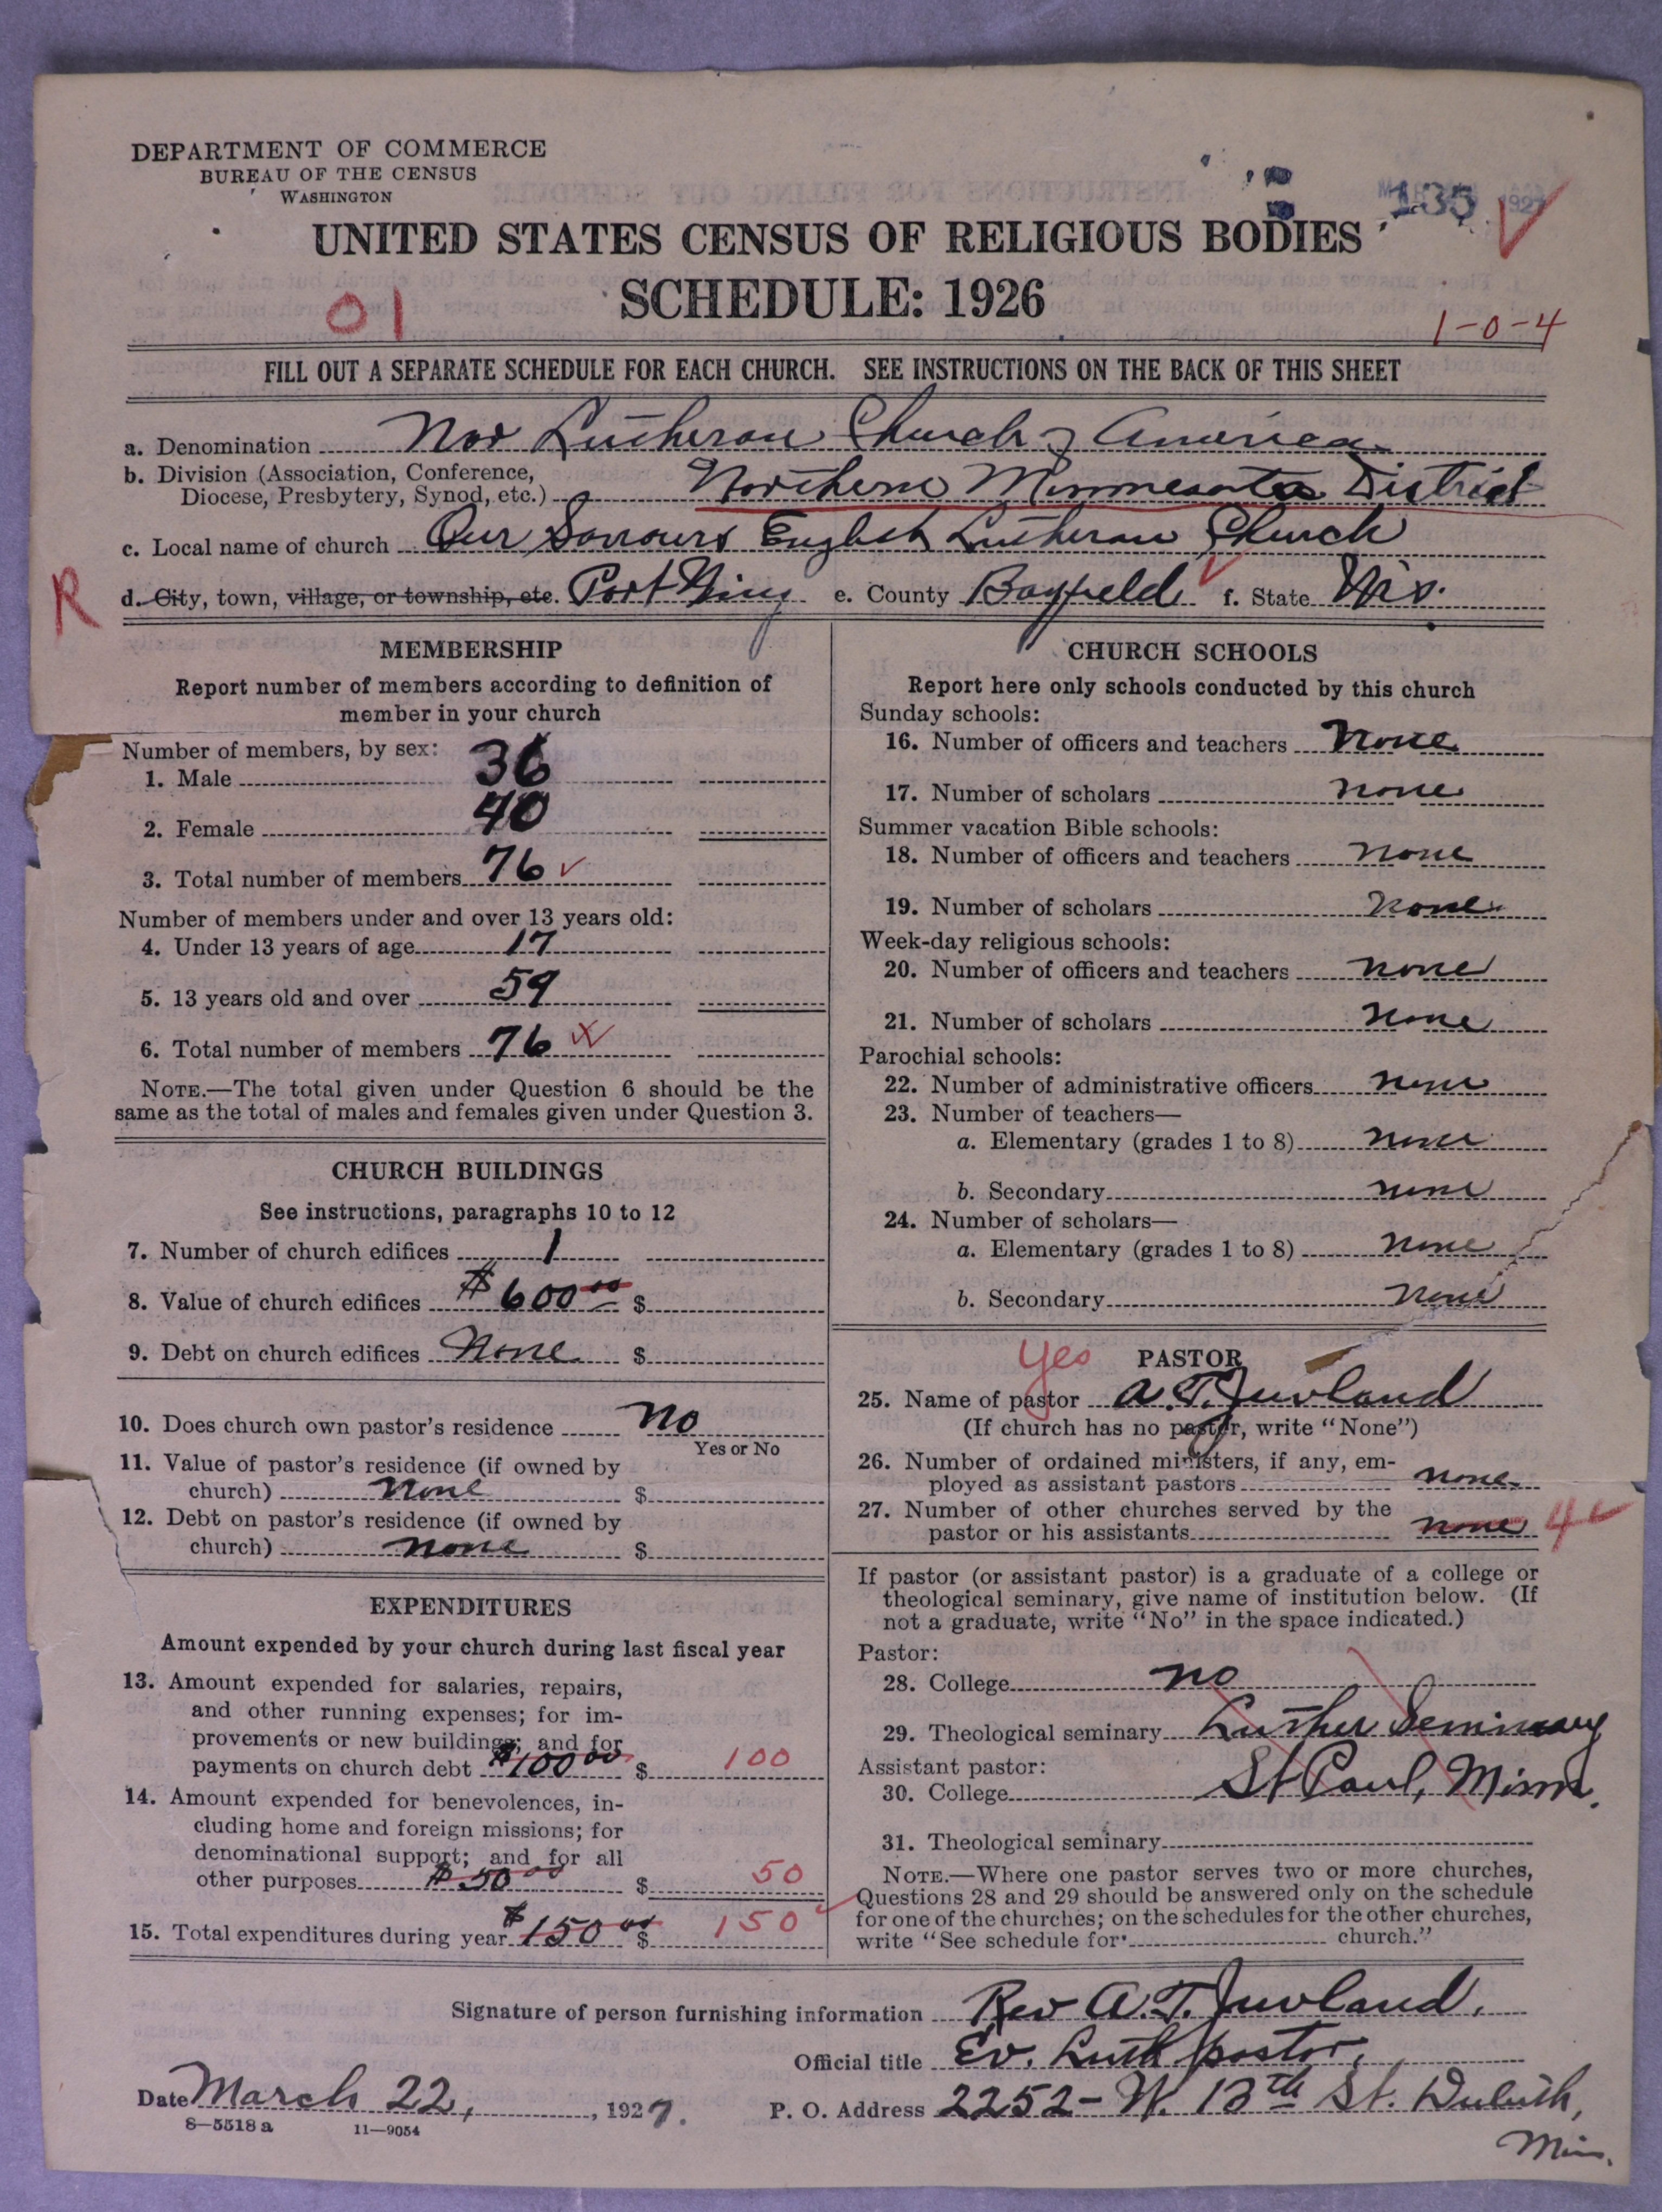 DEPARTMENT OF COMMERCE
BUREAU OF THE CENSUS
WASHINGTON
135 1927
UNITED STATES CENSUS OF RELIGIOUS BODIES
SCHEDULE: 1926
01
1-0-4
FILL OUT A SEPARATE SCHEDULE FOR EACH CHURCH. SEE INSTRUCTIONS ON THE BACK OF THIS SHEET
a. Denomination Nor Lutheran Church of America
b. Division (Association, Conference,
Diocese, Presbytery, Synod, etc.) Northern Minnesota District
c. Local name of church Our Saviours English Lutheran Church
R
d. City, town, village, or township, etc. Port Wing e. County Bayfield f. State Wis.
MEMBERSHIP
Report number of members according to definition of
member in your church
Number of members, by sex:
1. Male 36
2. Female 40
3. Total number of members 76
Number of members under and over 13 years old:
4. Under 13 years of age 17
5. 13 years old and over 59
6. Total number of members 76
NOTE.—The total given under Question 6 should be the
same as the total of males and females given under Question 3.
CHURCH BUILDINGS
See instructions, paragraphs 10 to 12
7. Number of church edifices 1
8. Value of church edifices $600.00 $
9. Debt on church edifices None $
10. Does church own pastor's residence No
Yes or No
11. Value of pastor's residence (if owned by
church) None $
12. Debt on pastor's residence (if owned by
church) None $
EXPENDITURES
Amount expended by your church during last fiscal year
13. Amount expended for salaries, repairs,
and other running expenses; for im-
provements or new buildings; and for
payments on church debt $100.00 $ 100
14. Amount expended for benevolences, in-
cluding home and foreign missions; for
denominational support; and for all
other purposes $50.00 $ 50
15. Total expenditures during year $150.00 $ 150
CHURCH SCHOOLS
Report here only schools conducted by this church
Sunday schools:
16. Number of officers and teachers None
17. Number of scholars None
Summer vacation Bible schools:
18. Number of officers and teachers None
19. Number of scholars None
Week-day religious schools:
20. Number of officers and teachers None
21. Number of scholars None
Parochial schools:
22. Number of administrative officers None
23. Number of teachers—
a. Elementary (grades 1 to 8) None
b. Secondary None
24. Number of scholars—
a. Elementary (grades 1 to 8) None
b. Secondary None
Yes PASTOR
25. Name of pastor A. T. Juvland
(If church has no pastor, write "None")
26. Number of ordained ministers, if any, em-
ployed as assistant pastors None
27. Number of other churches served by the
pastor or his assistants None 4
If pastor (or assistant pastor) is a graduate of a college or
theological seminary, give name of institution below. (If
not a graduate, write "No" in the space indicated.)
Pastor:
28. College No
29. Theological seminary Luther Seminary
Assistant pastor: St Paul, Minn.
30. College
31. Theological seminary
NOTE.—Where one pastor serves two or more churches,
Questions 28 and 29 should be answered only on the schedule
for one of the churches; on the schedules for the other churches,
write "See schedule for church."
Signature of person furnishing information Rev A. T. Juvland.
Official title Ev. Luth pastor,
Date March 22, 1927. P. O. Address 2252 - W. 12th St. Duluth,
Minn.
8-5518 a 11-9054